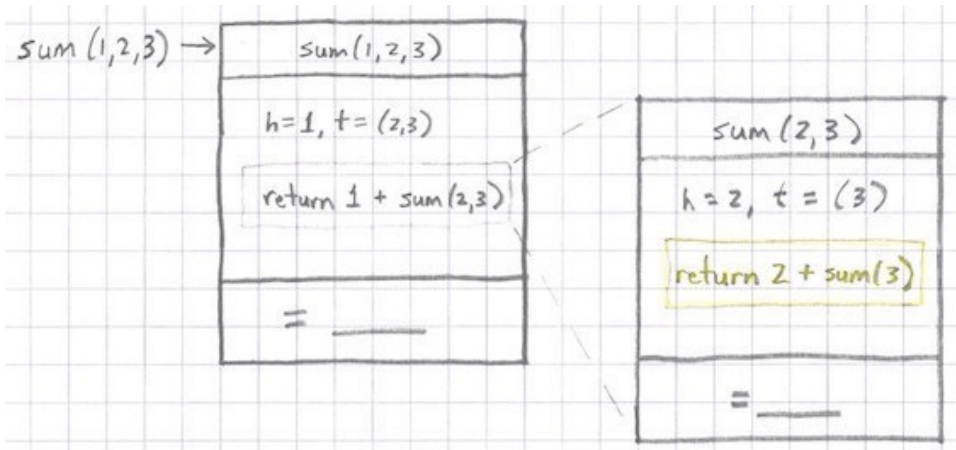 sum(1,2,3) →
sum(1,2,3)
h=1, t=(2,3)
return 1 + sum(2,3)
= ____
sum(2,3)
h=2, t=(3)
return 2 + sum(3)
= ____